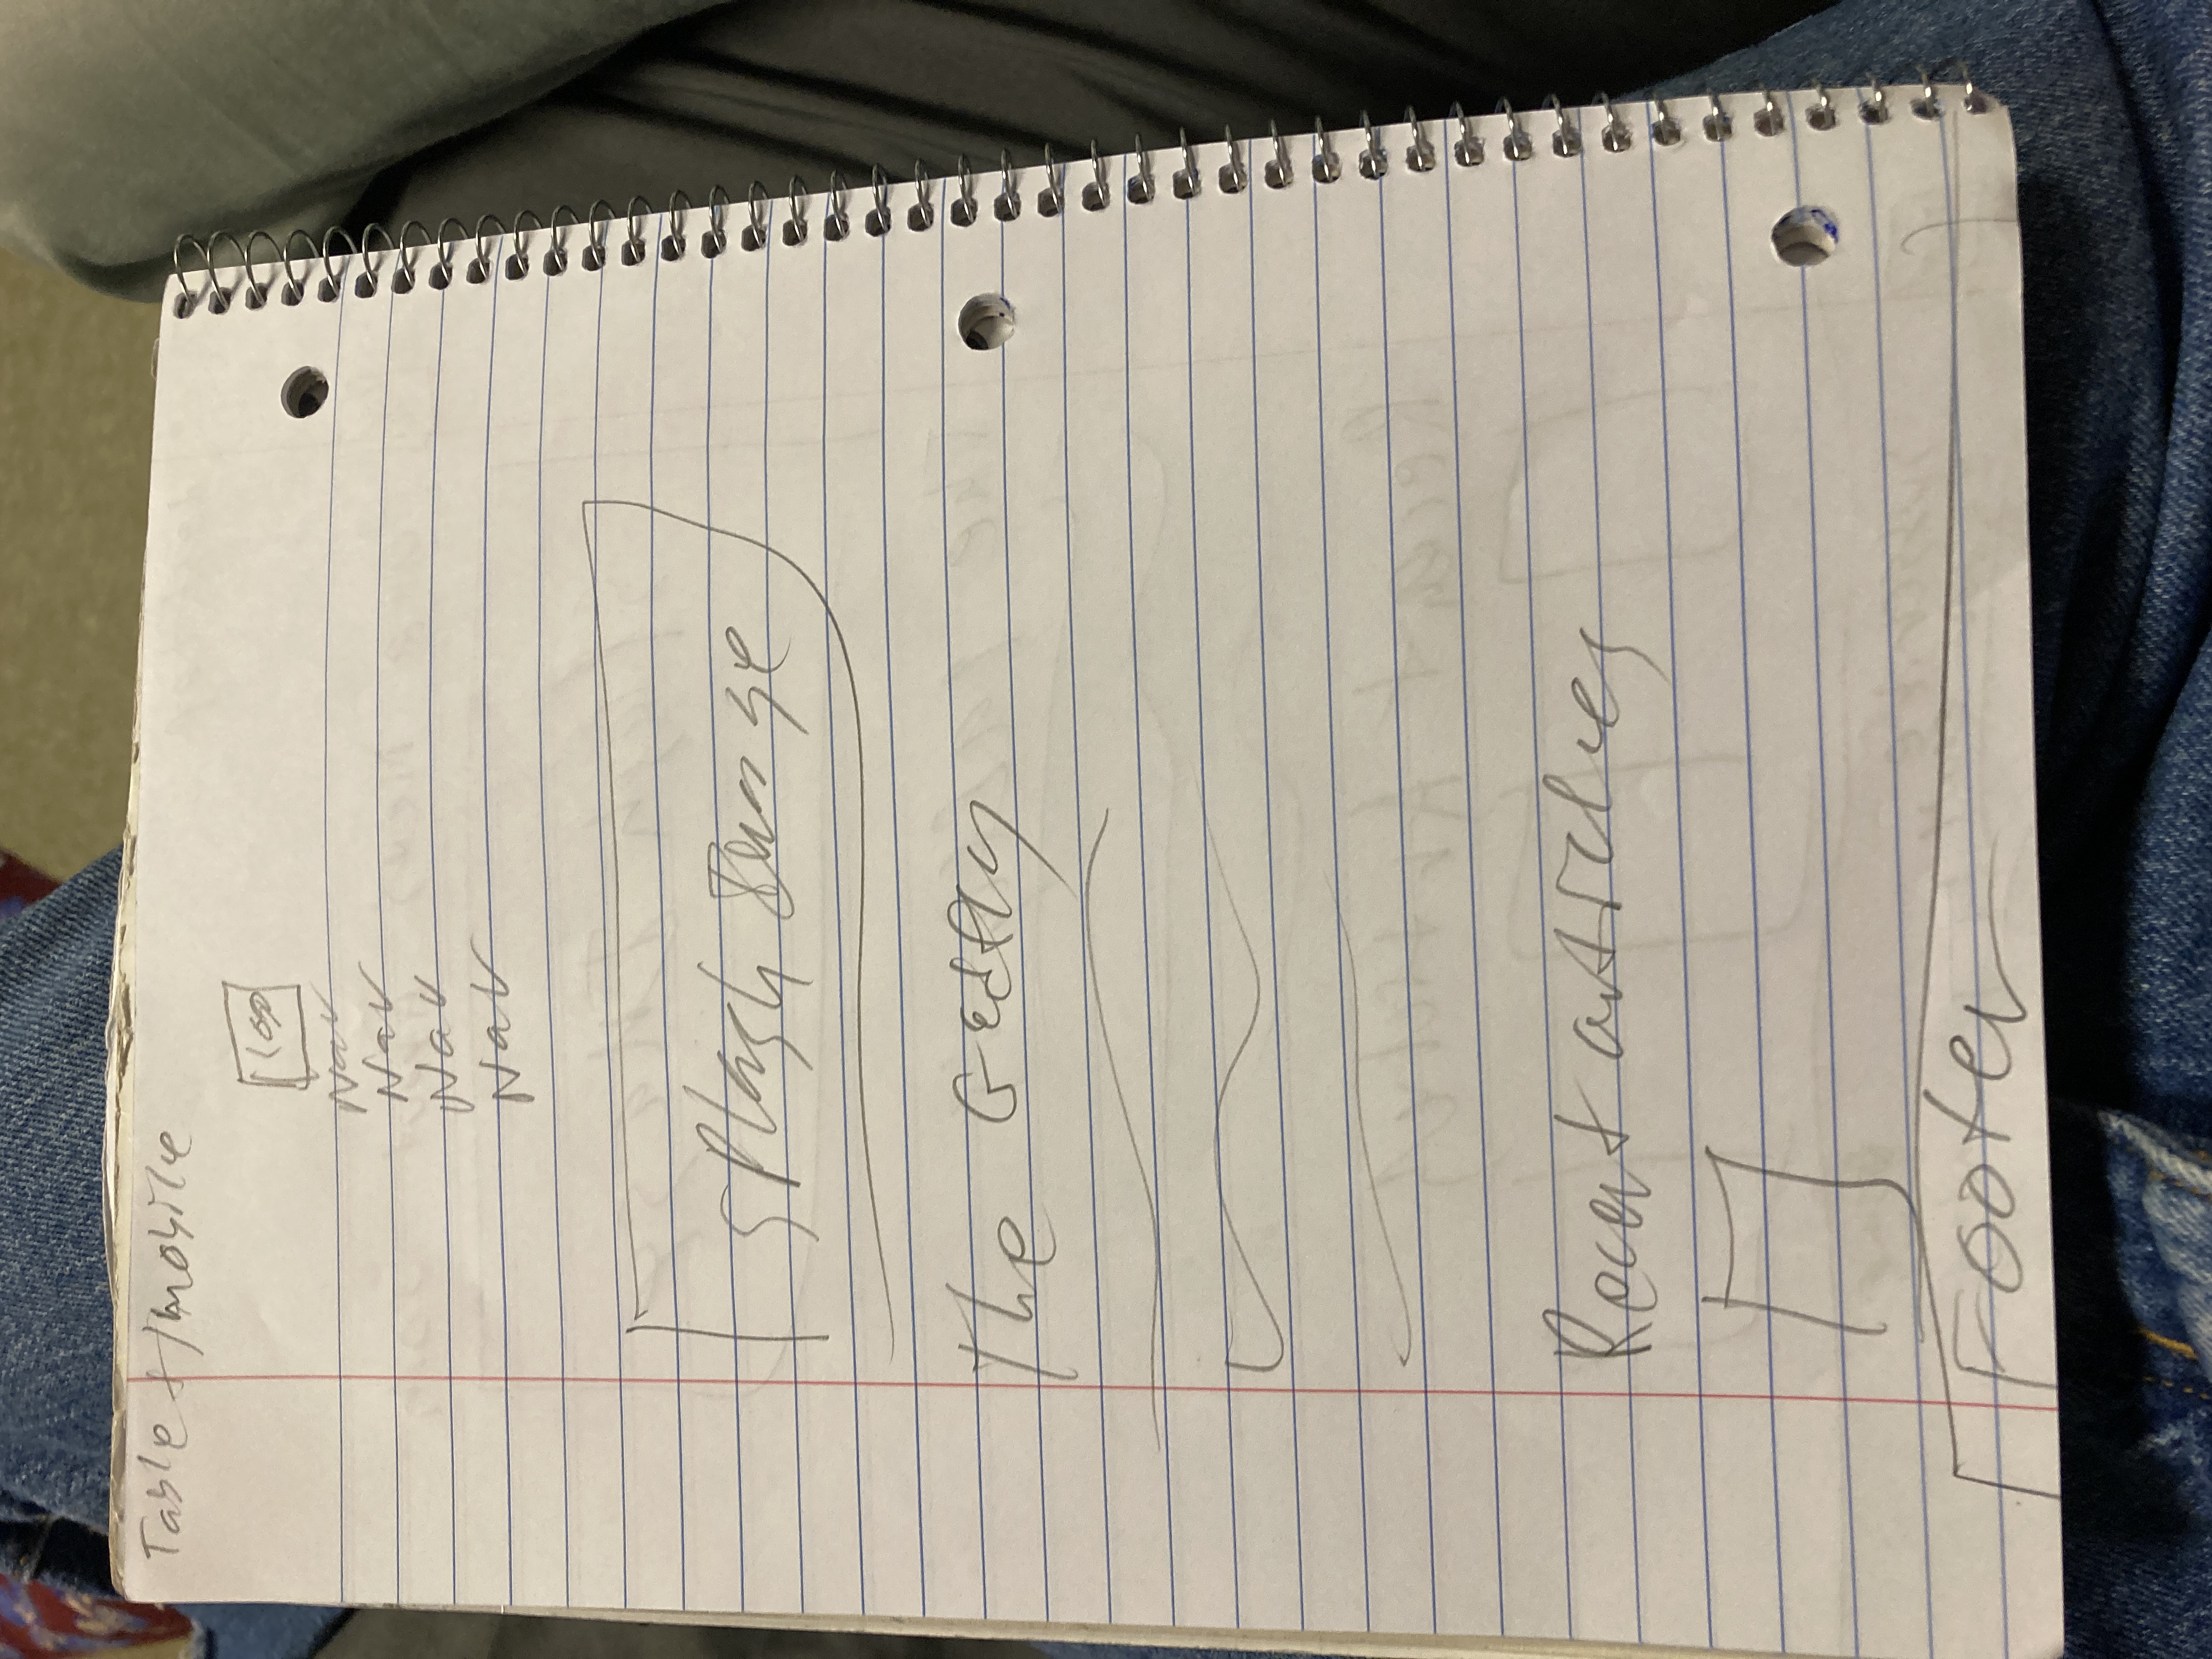 Tablet/mobile
logo
Nav
Nav
Nav
Nav
splash Image
The Gadfly
Recent articles
Footer